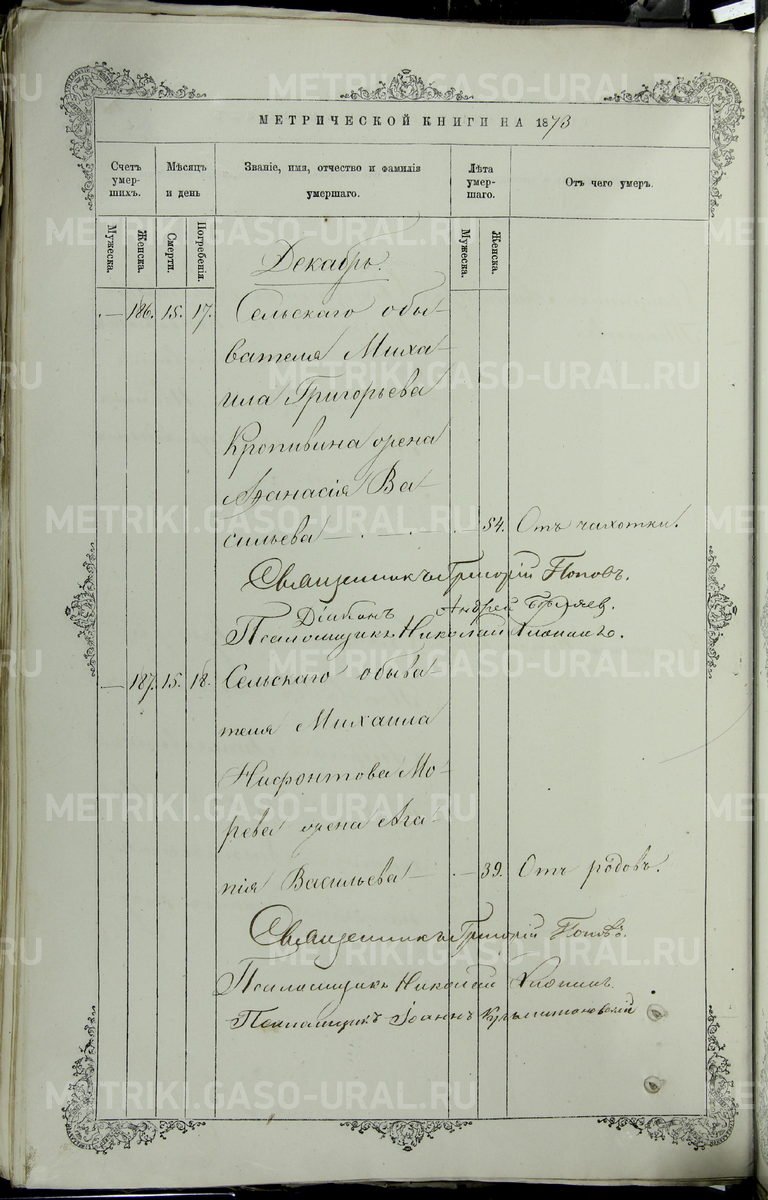 МЕТРИЧЕСКОЙ КНИГИ НА 1873
Счетъ умер-шихъ.
Мѣсяцъ и день
Званіе, имя, отчество и фамилія умершаго.
Лѣта умер-шаго.
Отъ чего умеръ.
Мужеска.
Женска.
Смерти.
Погребенія.
Мужеска.
Женска.
Декабрь.
— 186. 15. 17. Сельскаго обы-
вателя Миха-
ила Григорьева
Кропивина жена
Афанасія Ва-
сильева — 54. Отъ чахотки.
Священникъ Григорій Поповъ.
Діаконъ Андрей
Псаломщикъ Николай
— 187. 15. 18. Сельскаго обыва-
теля Михаила
Нифонтова Мо-
рева жена Ага-
пія Васильева — 39. Отъ родовъ.
Священникъ Григорій Поповъ.
Псаломщикъ Николай
Псаломщикъ Іоаннъ
METRIKI.GASO-URAL.RU